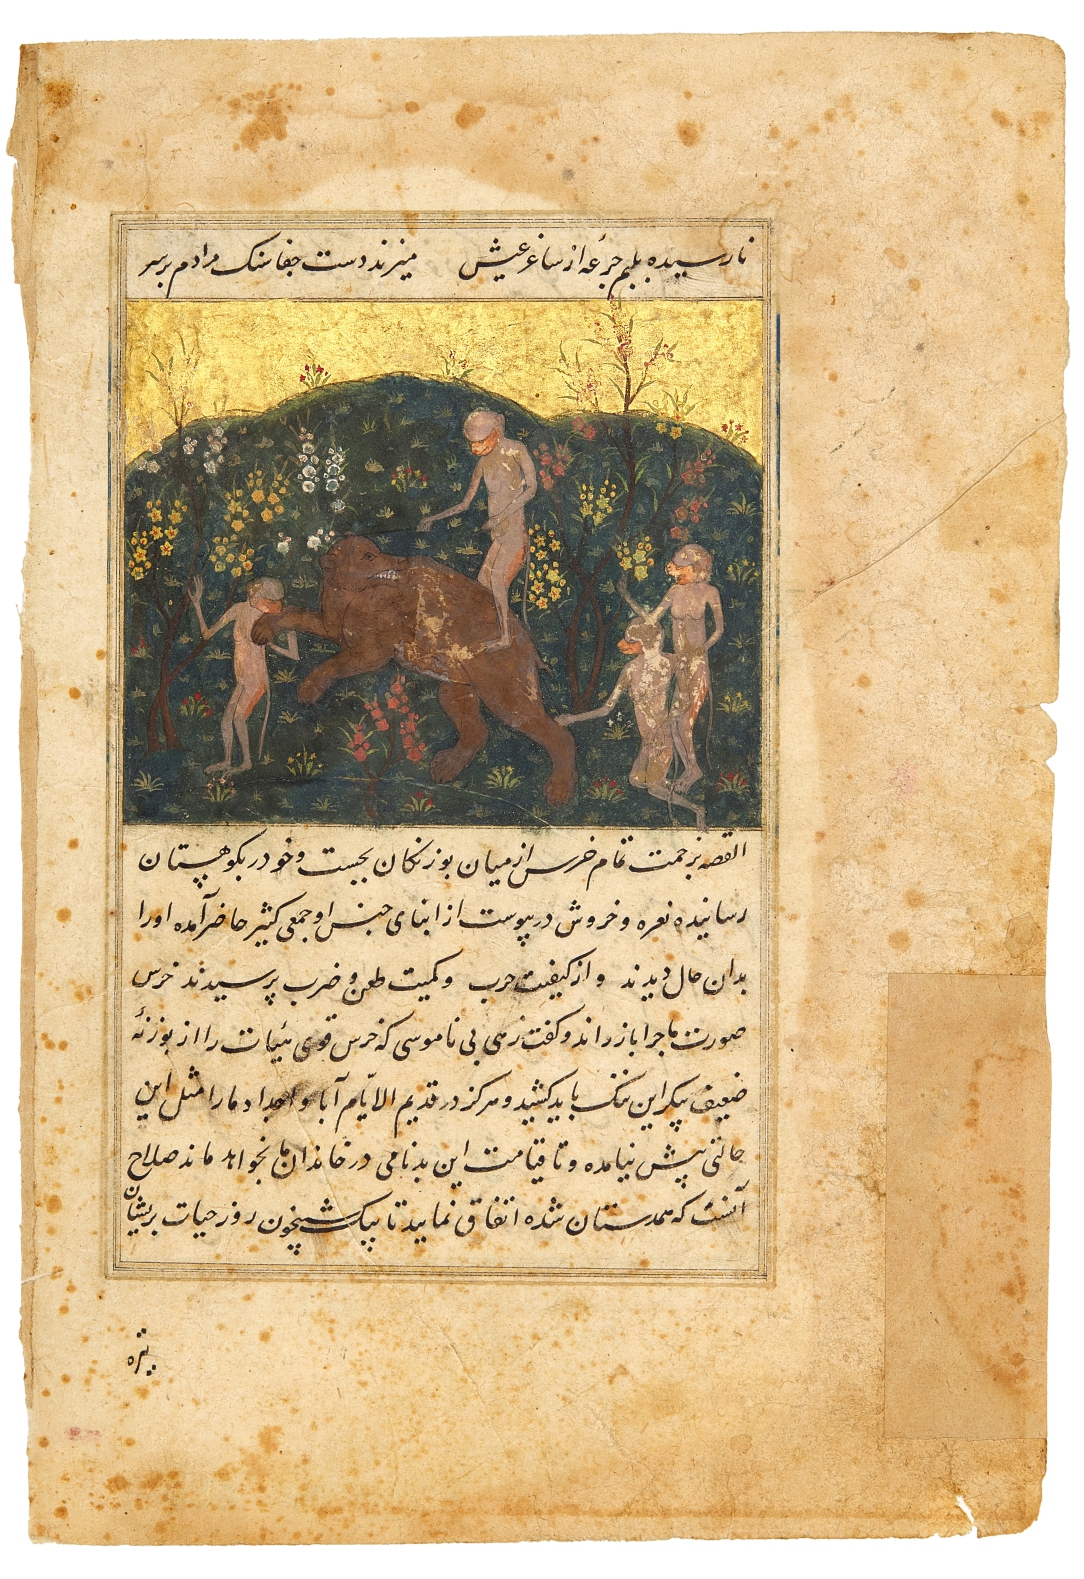 نارسیده بلبم جرعهٔ از ساغر عیش میزند دست جفا سنک مرادم بر سر
القصه بزحمت تمام خرس از میان بوزنکان بجست و خود در بکوهستان
رسانیده نعره و خروش در پیوست از ابنای جنس او جمعی کثیر حاضر آمده او را
بدان حال دیدند و از کیفیت حرب و کمیت طعن و ضرب پرسیدند خرس
صورت ماجرا باز راند و کفت زهی بی ناموسی که خرس قوی هیات را از بوزنهٔ
ضعیف پیکر این ننک باید کشید و هرکز در قدیم الایّام آبا و اجداد ما را مثل این
حالتی پیش نیامده و تا قیامت این بدنامی در خاندان ما بخواهد ماند صلاح
آنست که همدستان شده اتفاق نمایید تا بیک شبیخون روز حیات بریشان
تیره